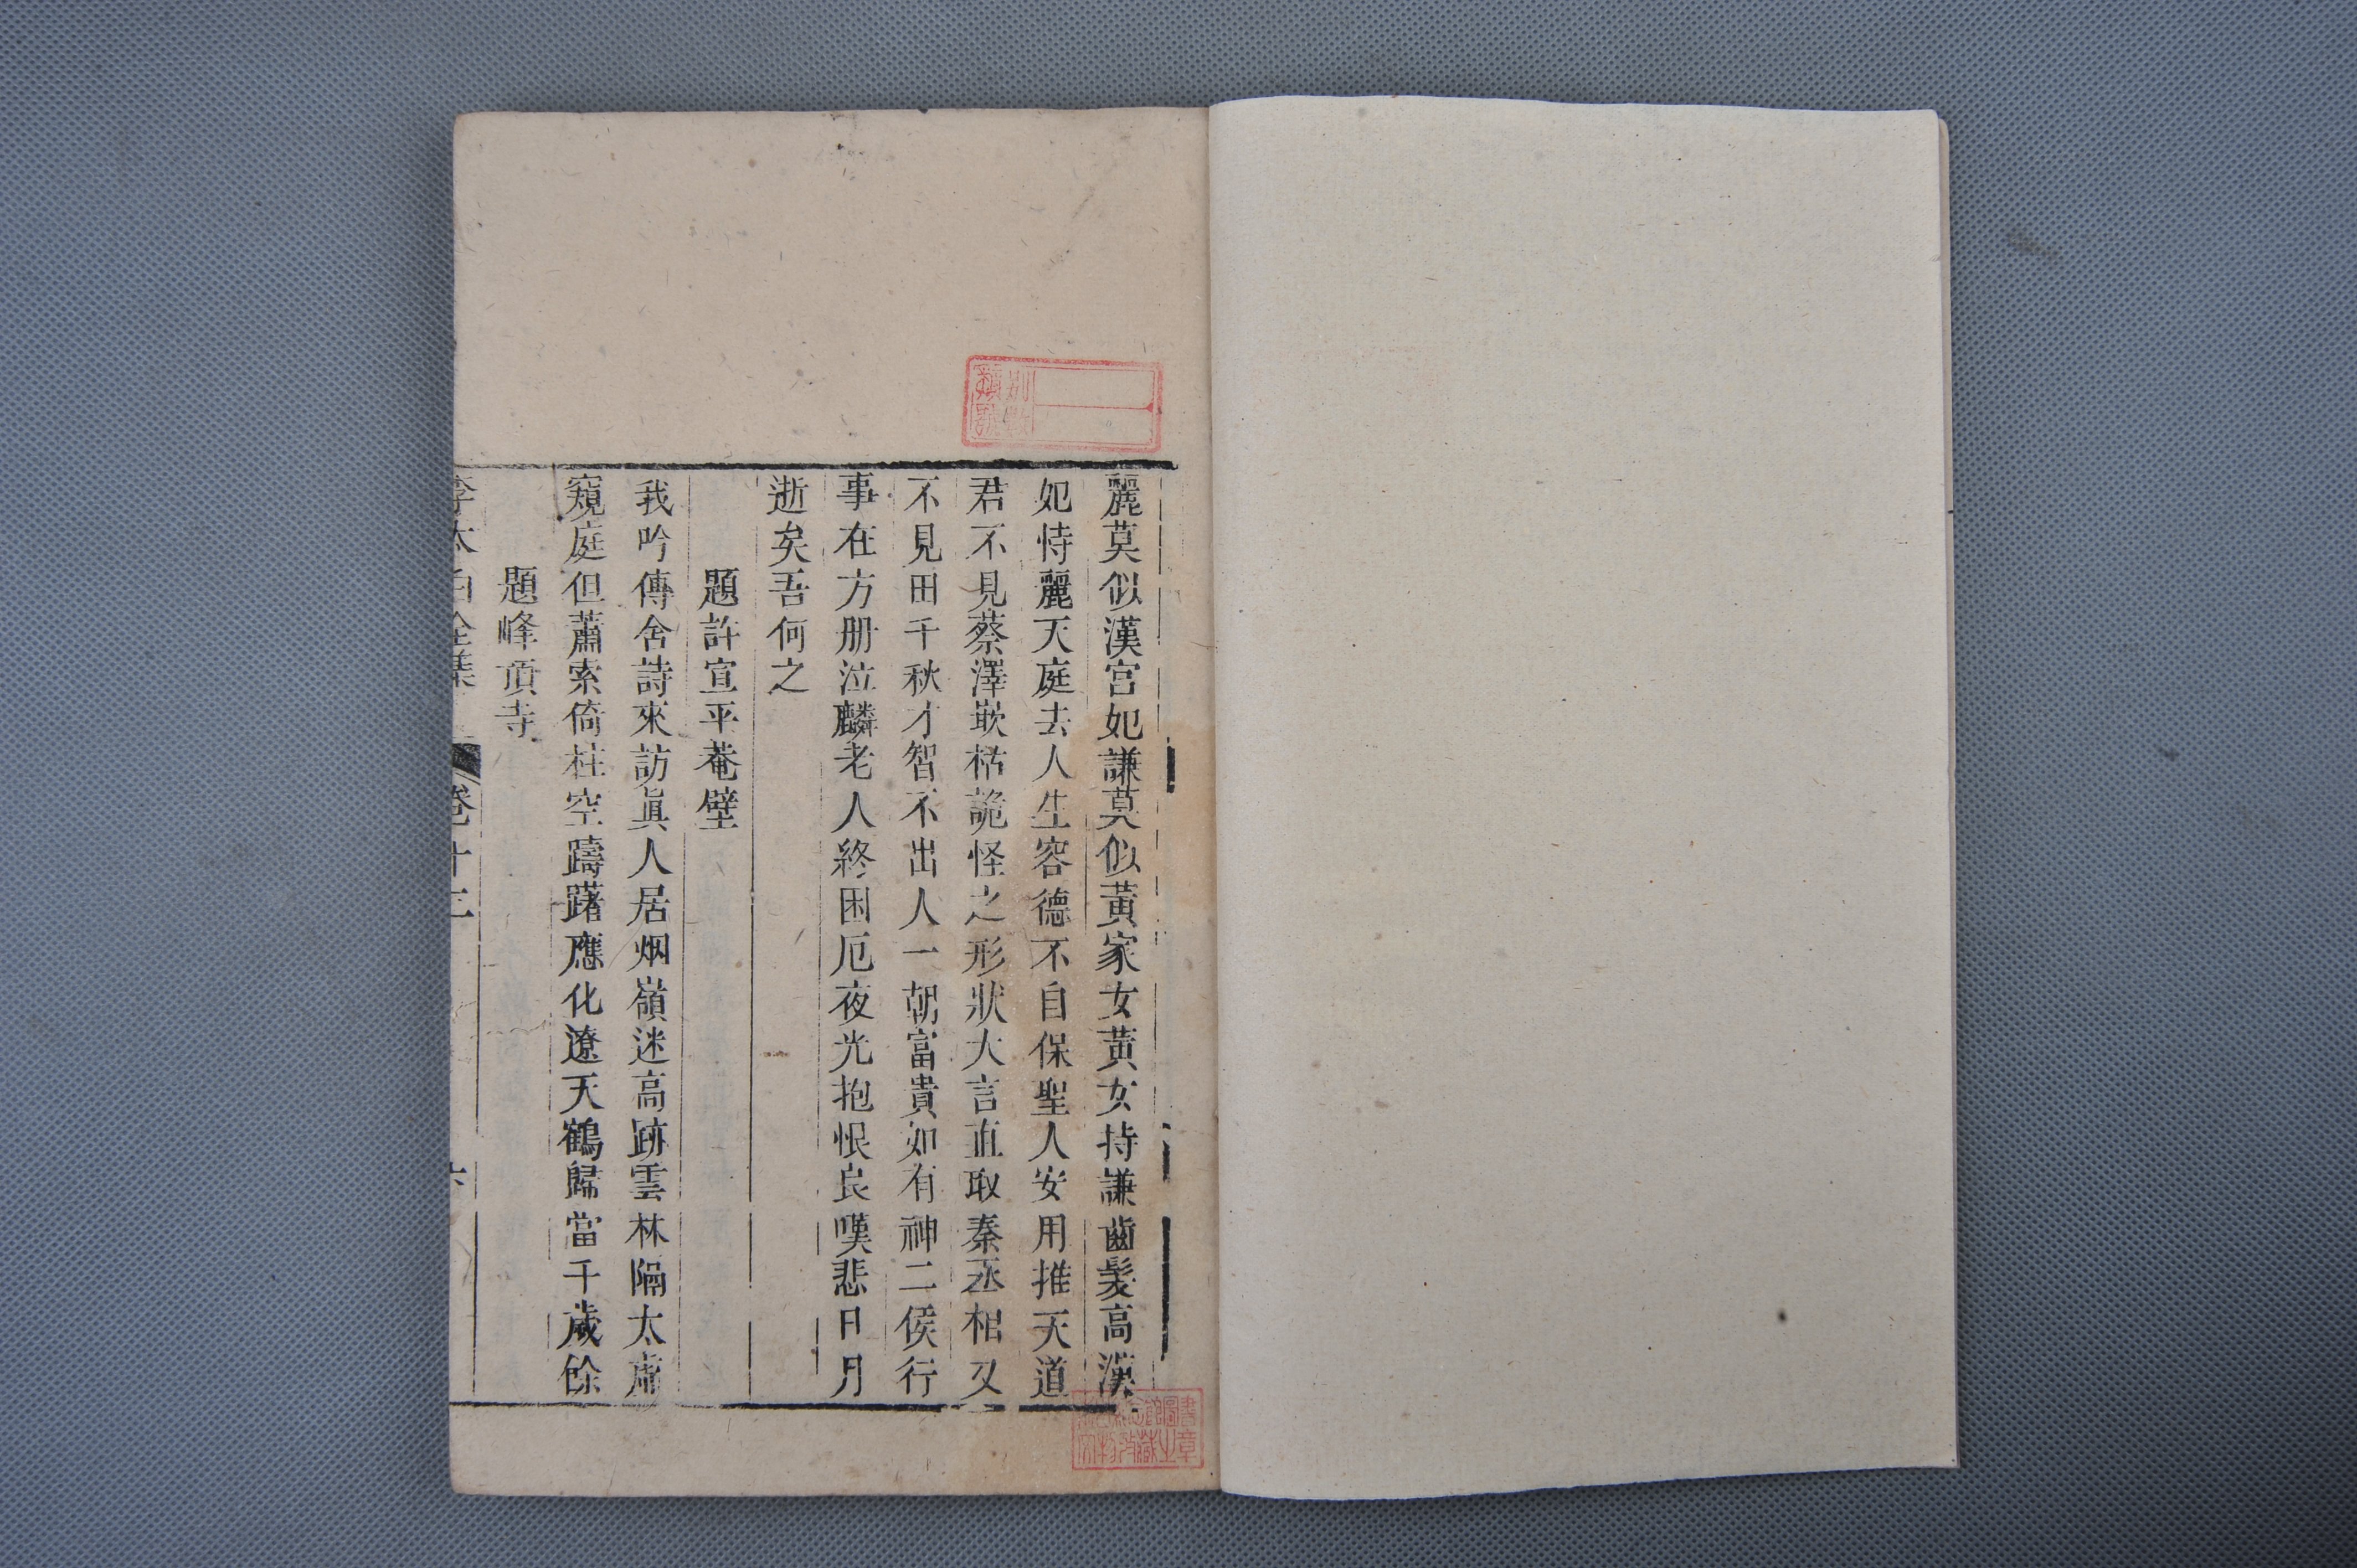 麗莫似漢宮妃謙莫似黃家女黃女持謙齒髮高漢
妃恃麗天庭去人生容德不自保聖人安用推天道
君不見蔡澤嶔枯詭怪之形狀大言直取秦丞相又
不見田千秋才智不出人一朝富貴如有神二侯行
事在方册泣麟老人終困厄夜光抱恨良嘆悲日月
逝矣吾何之
題許宣平菴壁
我吟傳舍詩來訪眞人居烟嶺迷高跡雲林隔太虛
窺庭但蕭索倚柱空躊躇應化遼天鶴歸當千歲餘
題峰頂寺
李太白全集 卷三十 六